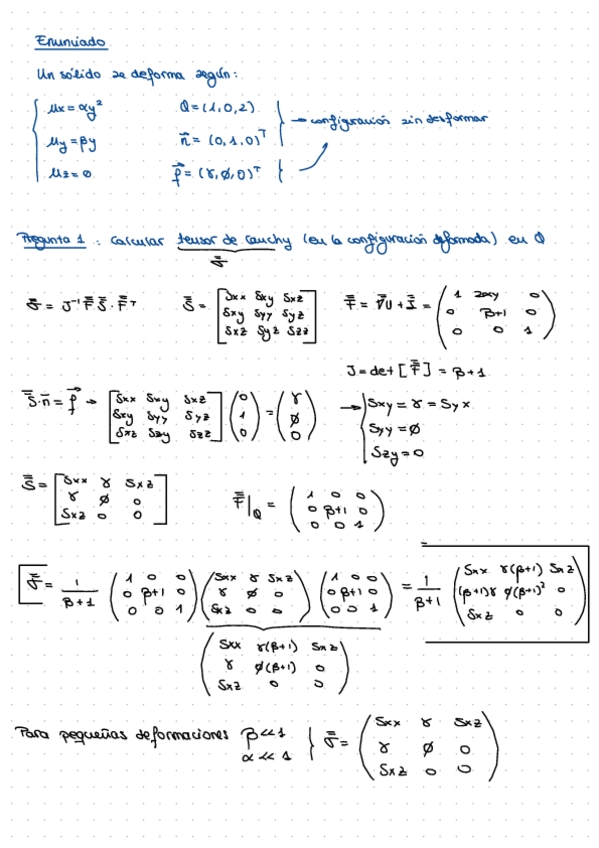 Enunciado
Un sólido se deforma según:
μx = αy² Q = (1,0,2)
μy = βy n⃗ = (0,1,0)ᵀ → configuración sin deformar
μz = 0 f⃗ = (γ,ϕ,0)ᵀ
Pregunta 1 : Calcular tensor de Cauchy (en la configuración deformada) en Q
σ̿
σ̿ = J⁻¹ F̿ S̿ · F̿ᵀ S̿ = [Sxx Sxy Sxz; Sxy Syy Syz; Sxz Syz Szz] F̿ = ∇̿U + I̿ = (1 2αy 0; 0 β+1 0; 0 0 1)
J = det [F̿] = β+1
S̿·n⃗ = f⃗ → [Sxx Sxy Sxz; Sxy Syy Syz; Sxz Szy Szz] (0; 1; 0) = (γ; ϕ; 0) → Sxy = γ = Syx
Syy = ϕ
Szy = 0
S̿ = [Sxx γ Sxz; γ ϕ 0; Sxz 0 0] F̿|Q = (1 0 0; 0 β+1 0; 0 0 1)
σ̿ = 1/(β+1) (1 0 0; 0 β+1 0; 0 0 1) (Sxx γ Sxz; γ ϕ 0; Sxz 0 0) (1 0 0; 0 β+1 0; 0 0 1) = 1/(β+1) (Sxx γ(β+1) Sxz; (β+1)γ ϕ(β+1)² 0; Sxz 0 0)
(Sxx γ(β+1) Sxz; γ ϕ(β+1) 0; Sxz 0 0)
Para pequeñas deformaciones β << 1
α << 1 } σ̿ = (Sxx γ Sxz; γ ϕ 0; Sxz 0 0)